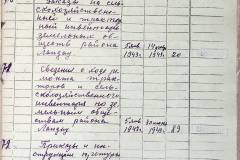 Заказы на сель-
скохозяйствен-
ный и трактор-
ный инвентарь
земельных об-
ществ района
Ландау
5 янв 1943г. 1943г. 20
71 Сведения о ходе ре-
монта трак-
торов и сель-
скохозяйственного
инвентаря по зе-
мельным обще-
ствам района
Ландау
5 янв 1943г. 1943г. 89
72 Приказы и ин-
струкции